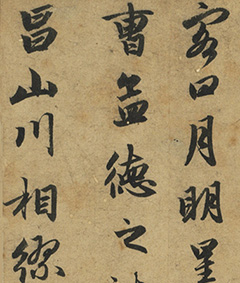 客曰月明星
曹孟德之詩
昌山川相繆